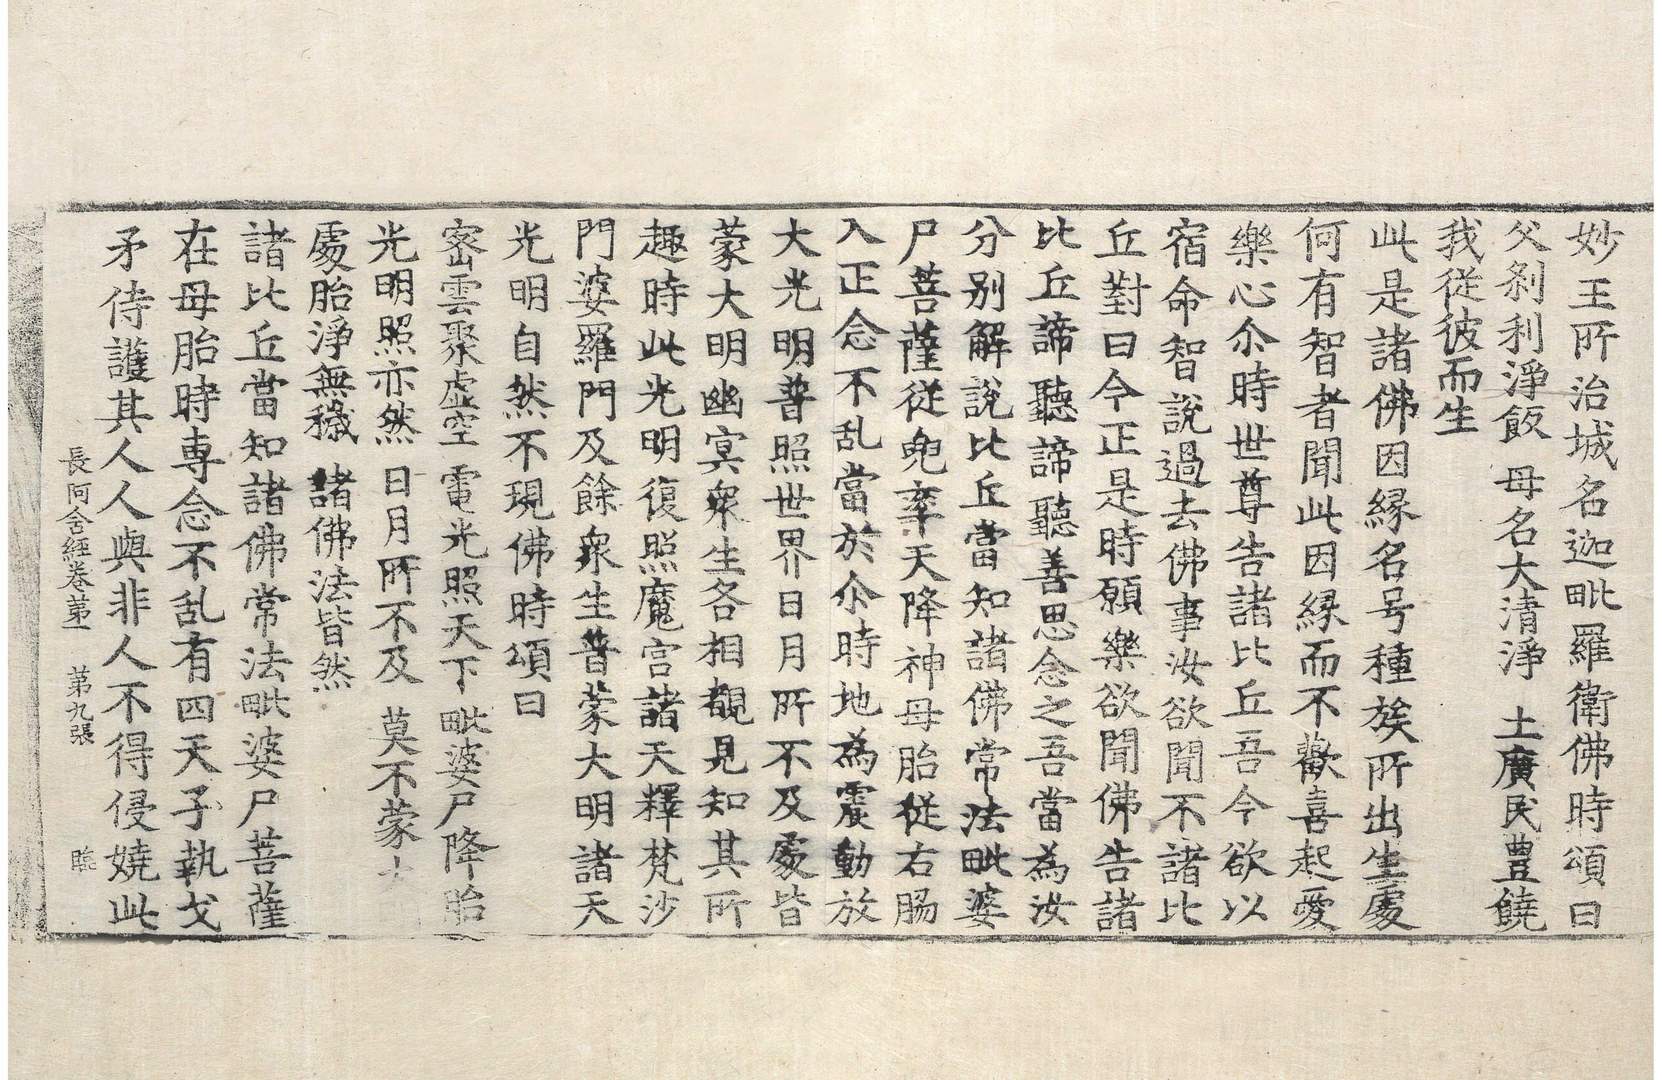 妙王所治城名迦毗羅衛佛時頌曰
父刹利淨飯 母名大清淨 土廣民豊饒
我從彼而生
此是諸佛因緣名号種族所出生處
何有智者聞此因緣而不歡喜起愛
樂心尒時世尊告諸比丘吾今欲以
宿命智說過去佛事汝欲聞不諸比
丘對曰今正是時願樂欲聞佛告諸
比丘諦聽諦聽善思念之吾當為汝
分別解說比丘當知諸佛常法毗婆
尸菩薩從兜率天降神母胎從右脇
入正念不乱當於尒時地為震動放
大光明普照世界日月所不及處皆
蒙大明幽冥衆生各相覩見知其所
趣時此光明復照魔宮諸天釋梵沙
門婆羅門及餘衆生普蒙大明諸天
光明自然不現佛時頌曰
密雲聚虛空 電光照天下 毗婆尸降胎
光明照亦然 日月所不及 莫不蒙大
處胎淨無穢 諸佛法皆然
諸比丘當知諸佛常法毗婆尸菩薩
在母胎時專念不乱有四天子執戈
矛侍護其人人與非人不得侵嬈此
長阿含經卷第一 第九張 臨